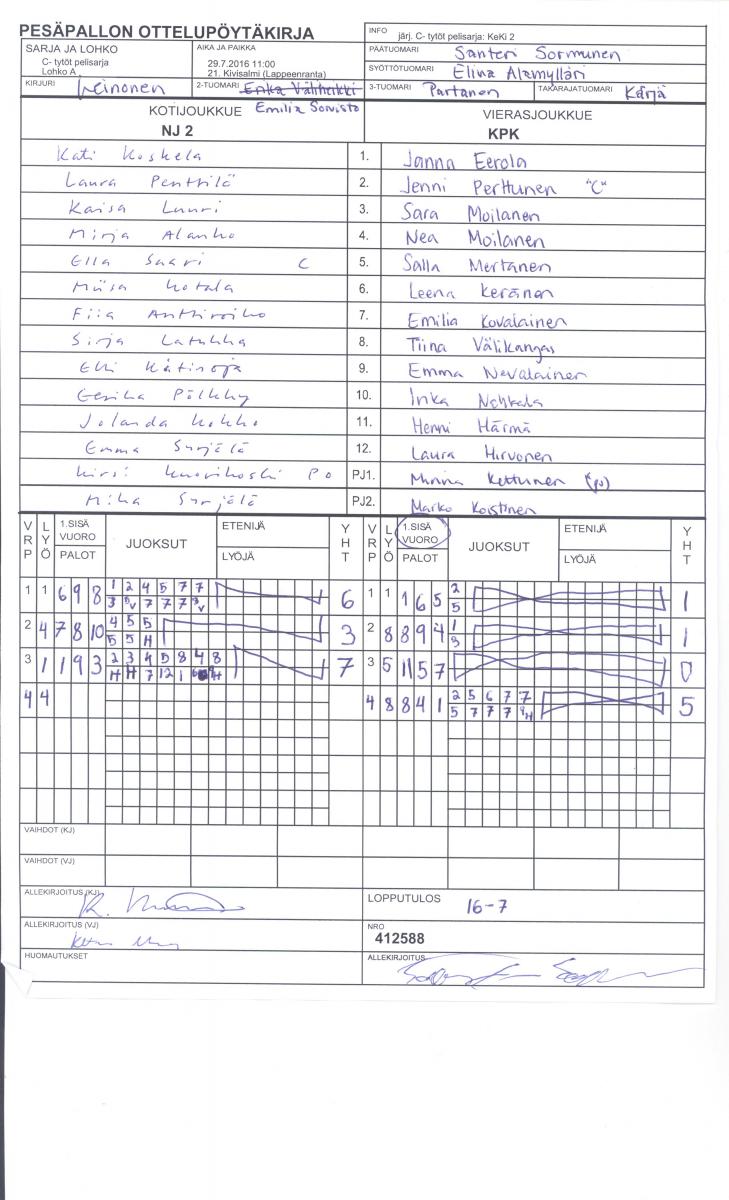 PESÄPALLON OTTELUPÖYTÄKIRJA
INFO järj. C- tytöt pelisarja: KeKi 2
SARJA JA LOHKO
C- tytöt pelisarja
Lohko A
AIKA JA PAIKKA
29.7.2016 11:00
21. Kivisalmi (Lappeenranta)
PÄÄTUOMARI Santeri Sormunen
SYÖTTÖTUOMARI Elina Alamylläri
KIRJURI Leinonen
2-TUOMARI Erika Väliheikki
Emilia Sorvisto
3-TUOMARI Partanen
TAKARAJATUOMARI Kärjä
KOTIJOUKKUE
NJ 2
VIERASJOUKKUE
KPK
Kati Koskela 1. Janna Eerola
Laura Penttilä 2. Jenni Perttunen "C"
Kaisa Luuri 3. Sara Moilanen
Mirja Alanko 4. Nea Moilanen
Ella Saari C 5. Salla Mertanen
Miisa Kotala 6. Leena Keränen
Fiia Anttiroiko 7. Emilia Kovalainen
Sirja Latukka 8. Tiina Välikangas
Elli Kätinoja 9. Emma Nevalainen
Eerika Pölkky 10. Inka
Jolanda Kokko 11. Henni Härmä
Emma Surjälä 12. Laura Hirvonen
Kirsi Kuorikoski PO PJ1. Minna Kettunen (po)
Mika Surjälä PJ2. Marko Koistinen
VRP LYÖ 1.SISÄ VUORO PALOT JUOKSUT ETENIJÄ LYÖJÄ YHT
VRP LYÖ 1.SISÄ VUORO PALOT JUOKSUT ETENIJÄ LYÖJÄ YHT
1 1 6 9 8 1 2 4 5 7 7 6
1 1 1 6 5 2 5 1
2 4 7 8 10 4 5 5 5 5 H 3
2 8 8 9 4 1 3 1
3 1 1 9 3 2 3 4 5 8 4 8 7
3 5 11 5 7 0
4 4
4 8 8 4 1 2 5 6 7 7 5
VAIHDOT (KJ)
VAIHDOT (VJ)
ALLEKIRJOITUS (KJ)
LOPPUTULOS 16-7
ALLEKIRJOITUS (VJ)
NRO
412588
HUOMAUTUKSET
ALLEKIRJOITUS